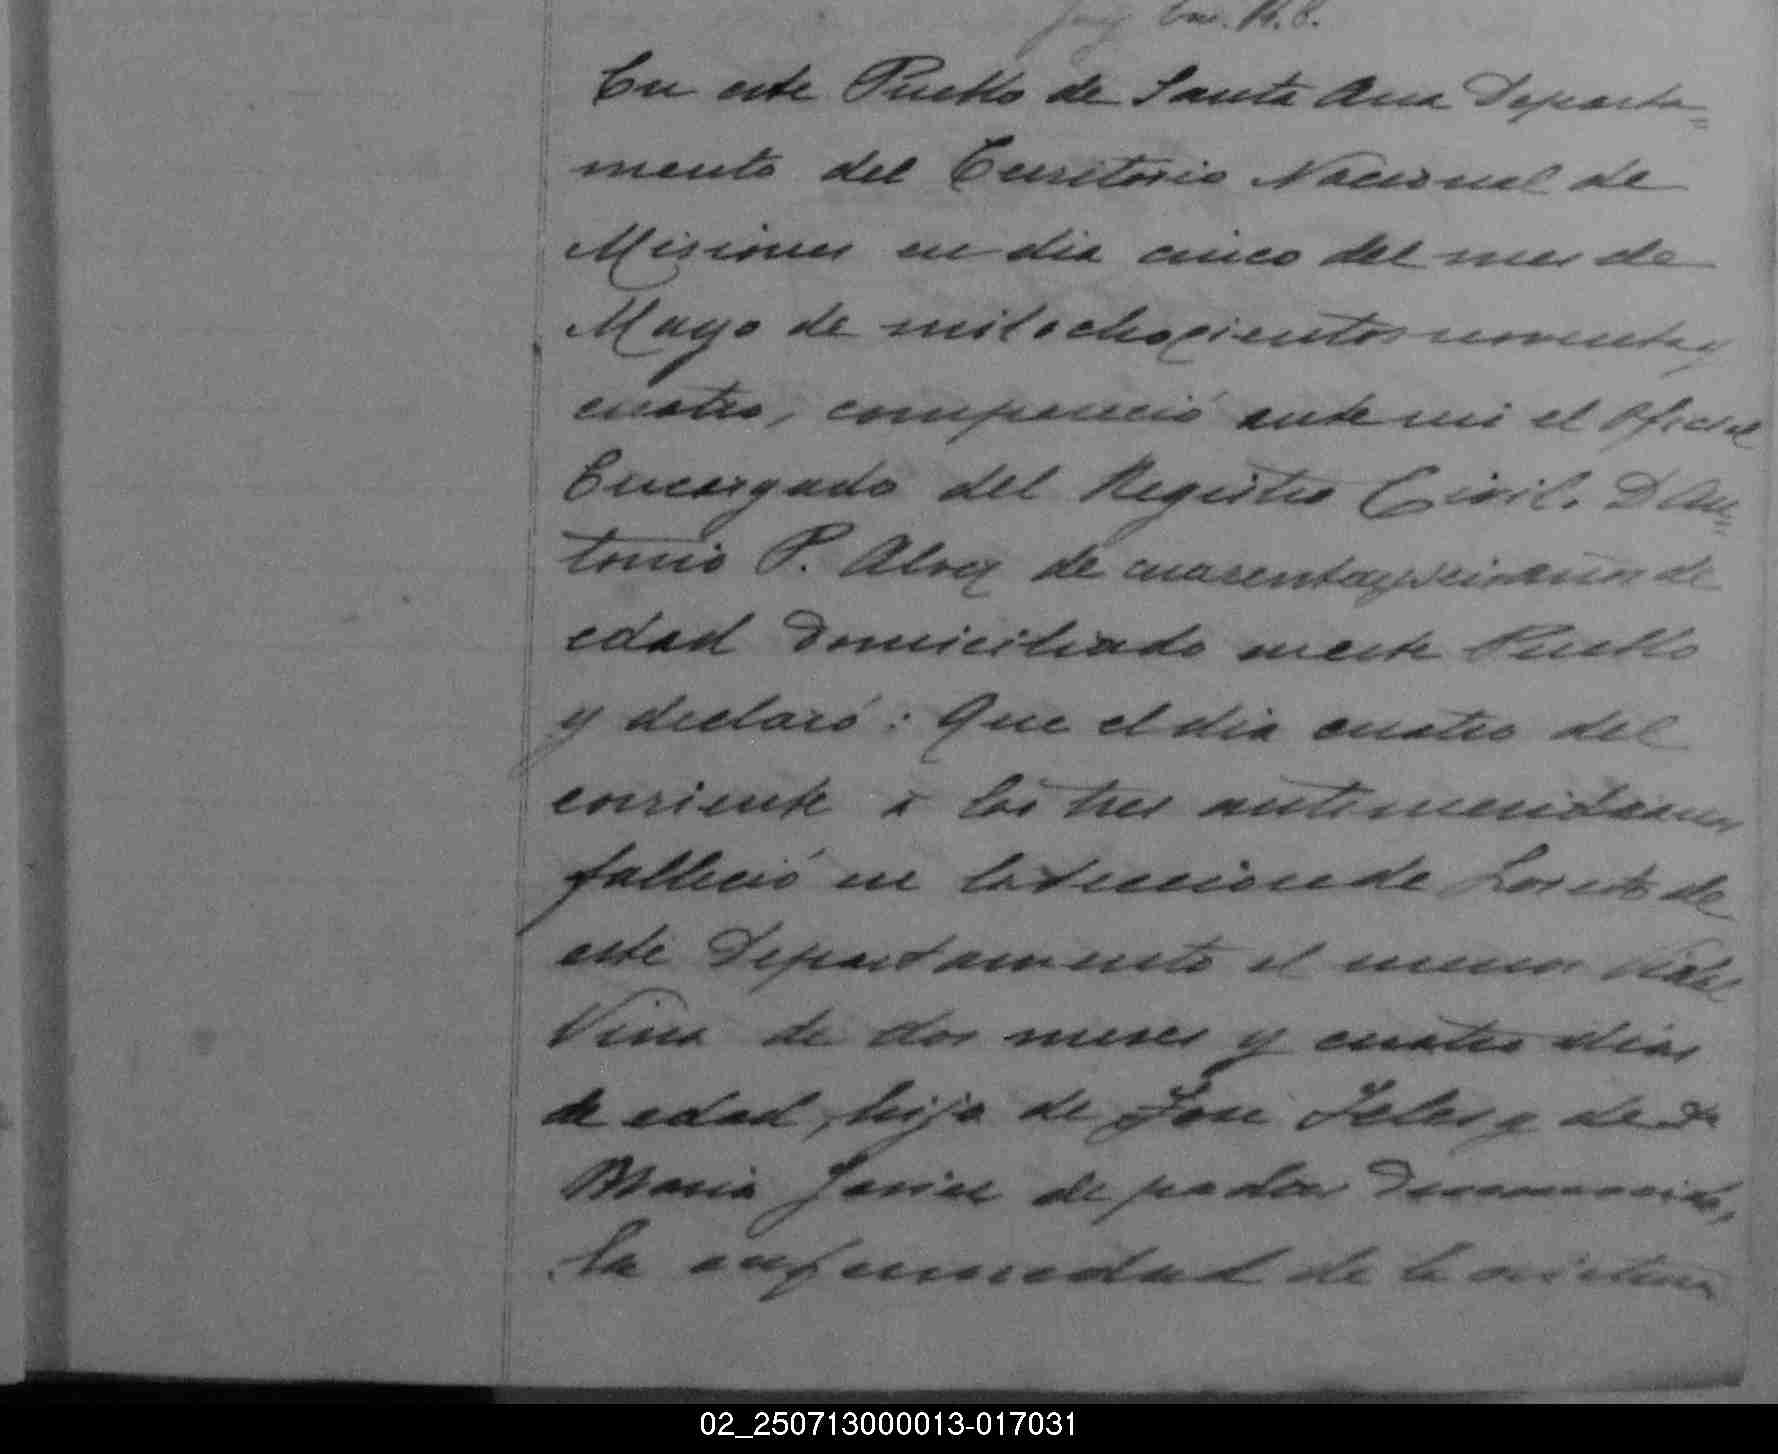 Enc. R. C.
En este Pueblo de Santa Ana Departa=
mento del Territorio Nacional de
Misiones en dia cinco del mes de
Mayo de mil ochocientos noventa y
cuatro, compareció ante mi el Oficial
Encargado del Registro Civil. D An=
tonio P. Alvez de cuarenta y seis años de
edad Domiciliado en este Pueblo
y declaró: Que el dia cuatro del
corriente á las tres antimeridianas
falleció en la seccion de Loreto de
este Departamento el menor Vidal
Vina de dos meses y cuatro dias
de edad, hijo de José Teles y de Da
Maria Javier de padres
la enfermedad de la
02_250713000013-017031